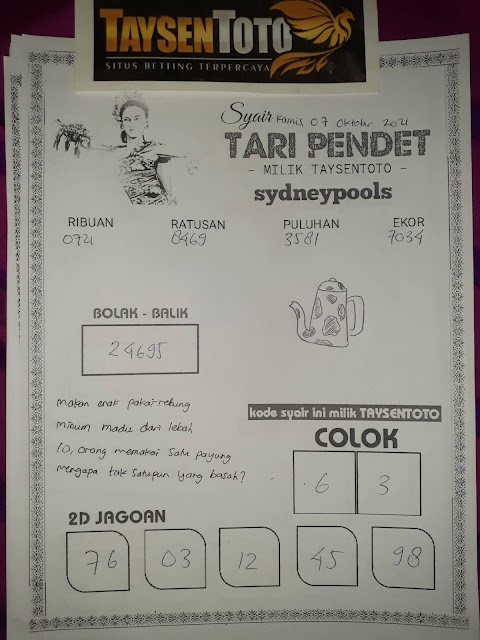 TAYSENTOTO
SITUS BETTING TERPERCAYA
Syair Kamis, 07 Oktober 2021
TARI PENDET
- MILIK TAYSENTOTO -
sydneypools
RIBUAN RATUSAN PULUHAN EKOR
0721 8469 3581 7034
BOLAK - BALIK
24695
makan enak pakai rebung
minum madu dari lebah
10, orang memakai satu payung
mengapa tak satupun yang basah?
kode syair ini milik TAYSENTOTO
COLOK
6 3
2D JAGOAN
76 03 12 45 98